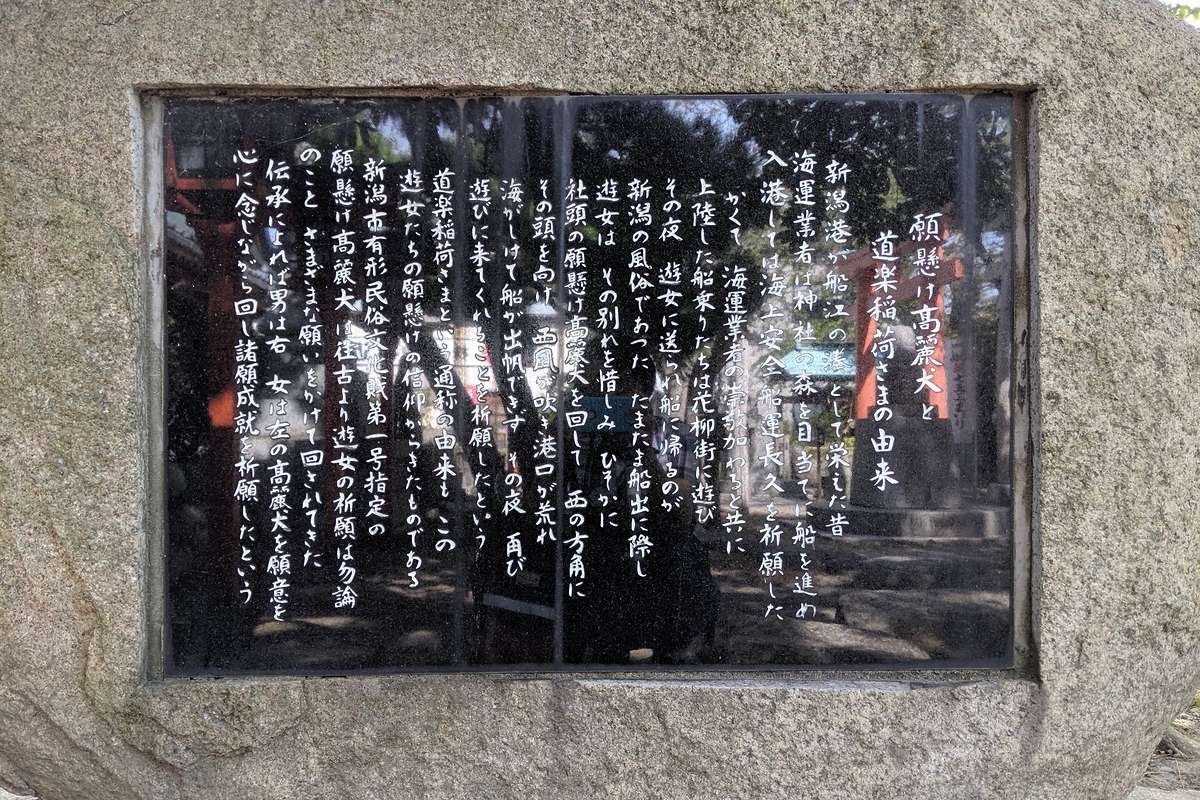 願懸け高麗犬と
道楽稲荷さまの由来
新潟港が船江の湊として栄えた昔
海運業者は神社の森を目当てに船を進め
入港しては海上安全船運長久を祈願した
かくて 海運業者の崇敬加わると共に
上陸した船乗りたちは花柳街に遊び
その夜 遊女に送られ船に帰るのが
新潟の風俗であつた たまたま船出に際し
遊女は その別れを惜しみ ひそかに
社頭の願懸け高麗犬を回して 西の方角に
その頭を向け 西風が吹き港口が荒れ
海がしけて船が出帆できず その夜 再び
遊びに来てくれることを祈願したという
道楽稲荷さまという通称の由来も この
遊女たちの願懸けの信仰からきたものである
新潟市有形民俗文化財第一号指定の
願懸け高麗犬は往古より遊女の祈願は勿論
のこと さまざまな願いをかけて回されてきた
伝承によれば男は右 女は左の高麗犬を願意を
心に念じながら回し諸願成就を祈願したという